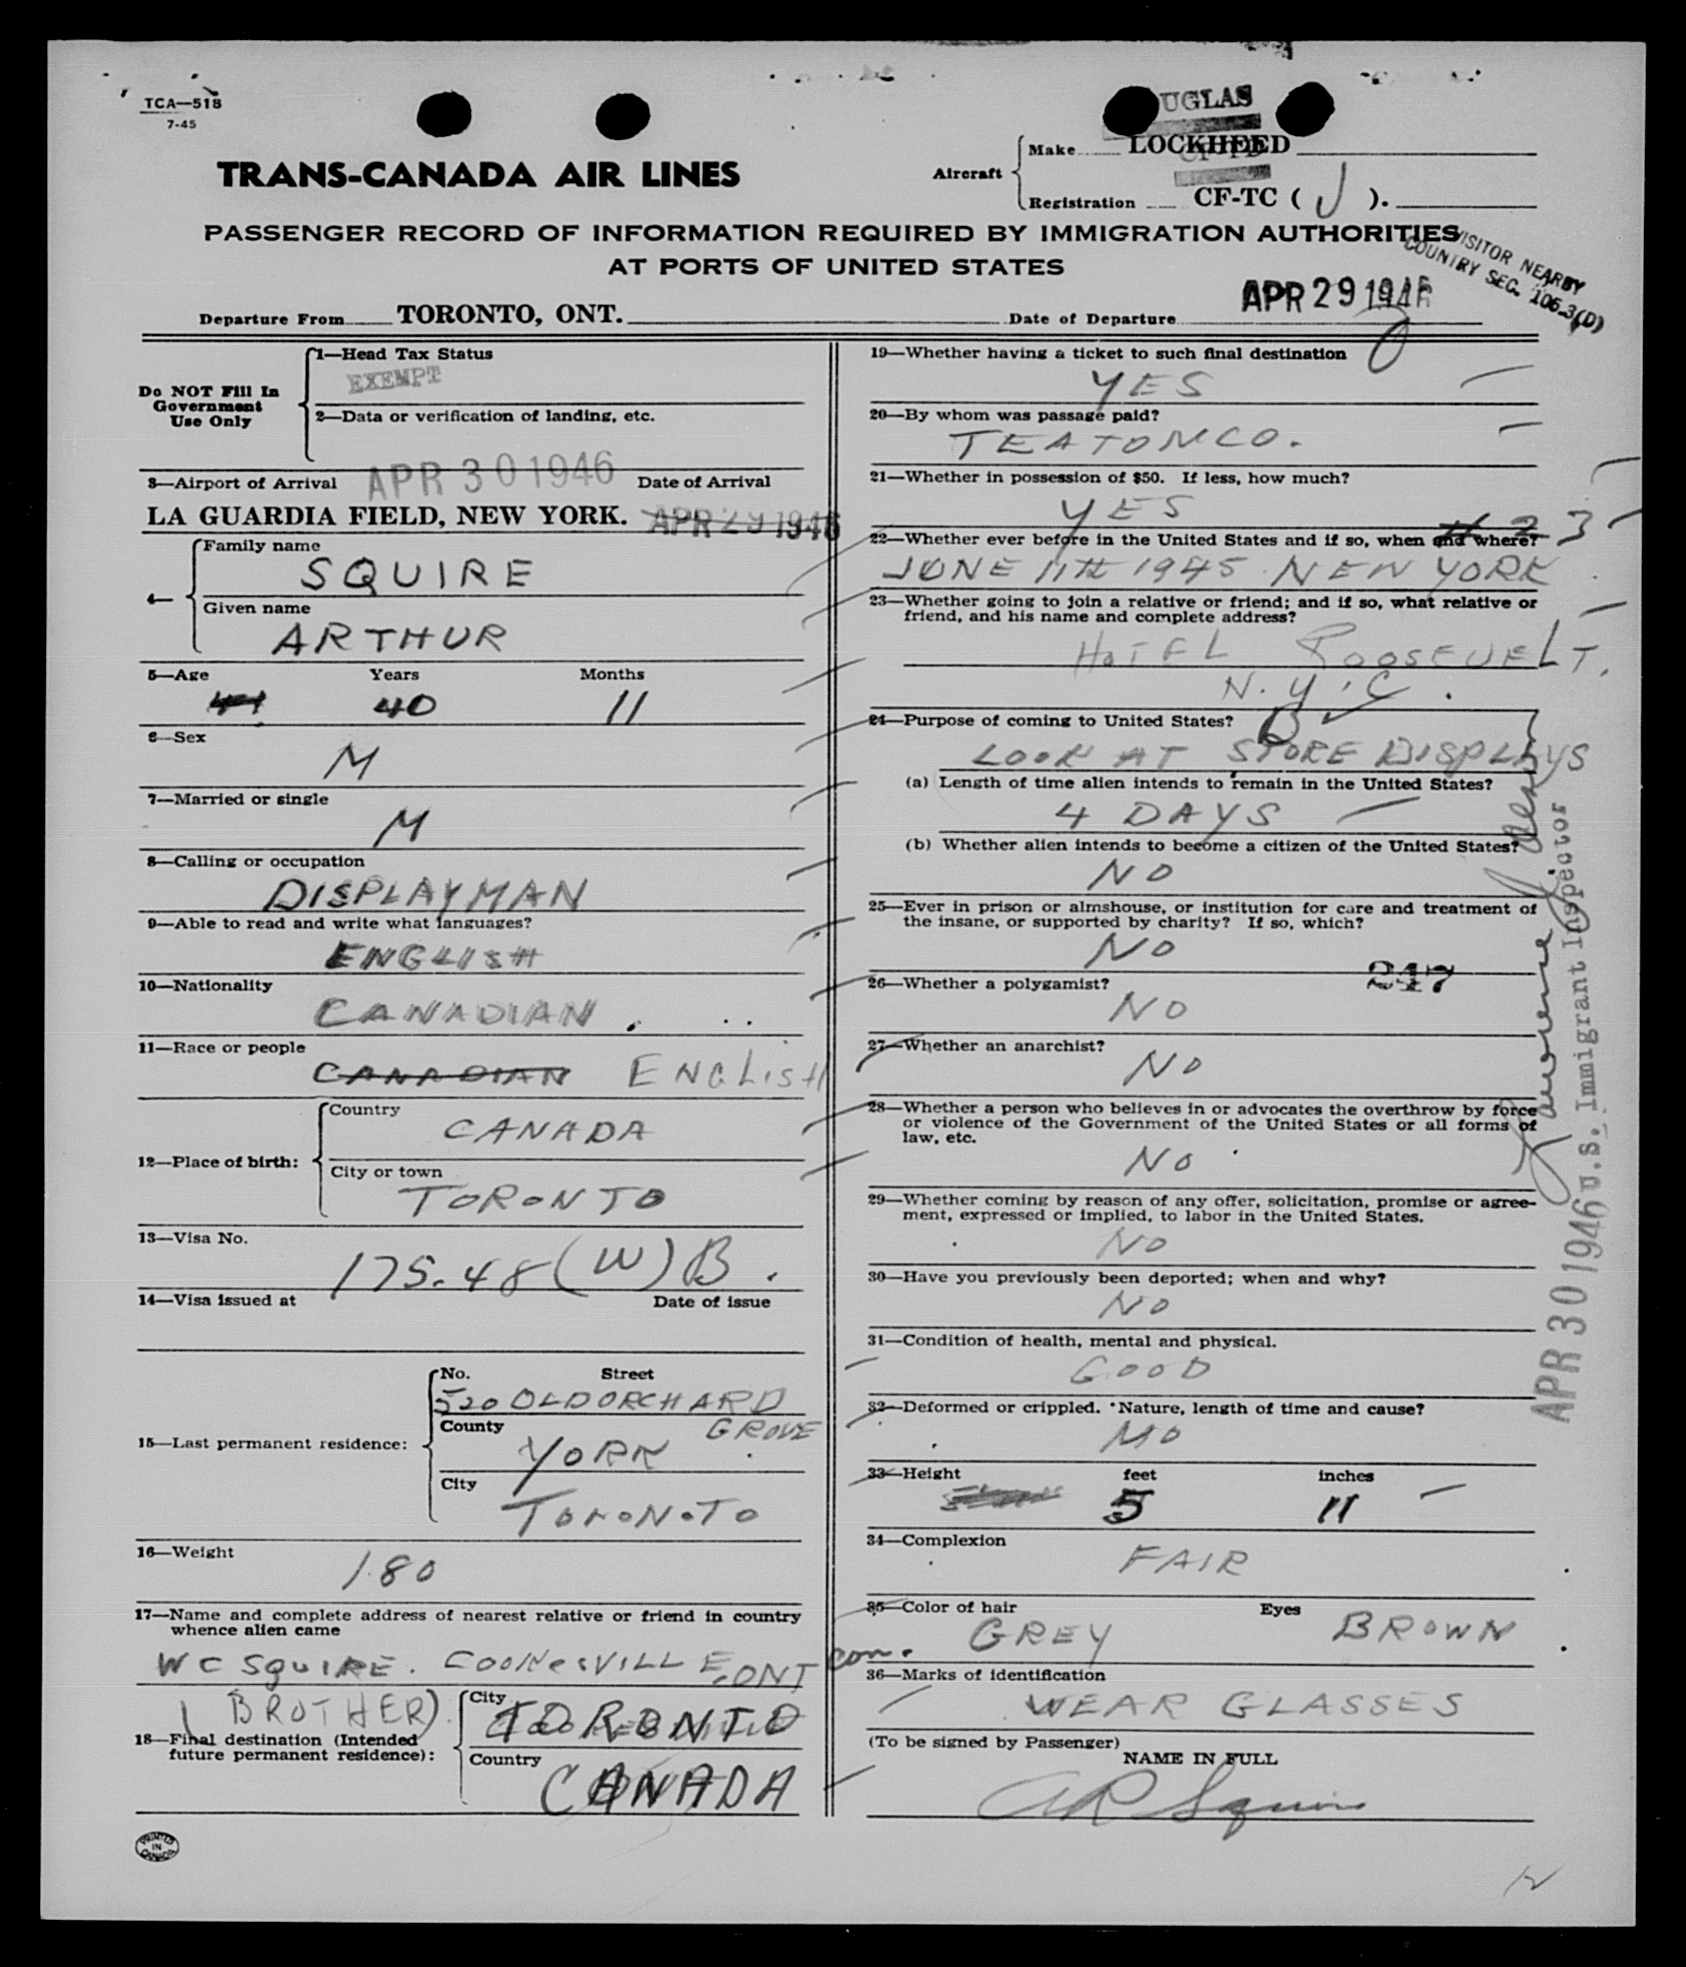 TCA—518
7-45
UGLAS
Make LOCKHEED
TRANS-CANADA AIR LINES
Aircraft
Registration CF-TC ( J ).
PASSENGER RECORD OF INFORMATION REQUIRED BY IMMIGRATION AUTHORITIES
AT PORTS OF UNITED STATES
VISITOR NEARBY
COUNTRY SEC. 105.3(D)
Departure From TORONTO, ONT. Date of Departure APR 29 1946
Do NOT Fill In
Government
Use Only
1—Head Tax Status
EXEMPT
2—Data or verification of landing, etc.
3—Airport of Arrival APR 30 1946 Date of Arrival
LA GUARDIA FIELD, NEW YORK. APR 29 1946
4—
Family name
SQUIRE
Given name
ARTHUR
5—Age Years Months
41 40 11
6—Sex
M
7—Married or single
M
8—Calling or occupation
DISPLAYMAN
9—Able to read and write what languages?
ENGLISH
10—Nationality
CANADIAN.
11—Race or people
CANADIAN ENGLISH
12—Place of birth:
Country
CANADA
City or town
TORONTO
13—Visa No.
175.48 (W) B.
14—Visa issued at Date of issue
15—Last permanent residence:
No. Street
520 OLD ORCHARD
GROVE
County
YORK
City
TORONTO
16—Weight
180
17—Name and complete address of nearest relative or friend in country
whence alien came
W C SQUIRE. COOKESVILLE, ONT
(BROTHER)
18—Final destination (Intended
future permanent residence):
City
TORONTO
Country
CANADA
PRINTED
IN
CANADA
19—Whether having a ticket to such final destination
YES
20—By whom was passage paid?
T EATON CO.
21—Whether in possession of $50. If less, how much?
YES
22—Whether ever before in the United States and if so, when and where?
JUNE 11TH 1945 NEW YORK
23—Whether going to join a relative or friend; and if so, what relative or
friend, and his name and complete address?
HOTEL ROOSEVELT.
N.Y.C.
24—Purpose of coming to United States? B
LOOK AT STORE DISPLAYS
(a) Length of time alien intends to remain in the United States?
4 DAYS
(b) Whether alien intends to become a citizen of the United States?
NO
25—Ever in prison or almshouse, or institution for care and treatment of
the insane, or supported by charity? If so, which?
NO
247
26—Whether a polygamist?
NO
27—Whether an anarchist?
NO
28—Whether a person who believes in or advocates the overthrow by force
or violence of the Government of the United States or all forms of
law, etc.
NO
29—Whether coming by reason of any offer, solicitation, promise or agree-
ment, expressed or implied, to labor in the United States.
NO
30—Have you previously been deported; when and why?
NO
31—Condition of health, mental and physical.
GOOD
32—Deformed or crippled. Nature, length of time and cause?
NO
33—Height feet inches
5 11
34—Complexion
FAIR
35—Color of hair Eyes
GREY BROWN
36—Marks of identification
WEAR GLASSES
(To be signed by Passenger)
NAME IN FULL
A R Squire
APR 30 1946 U.S. Immigrant Inspector